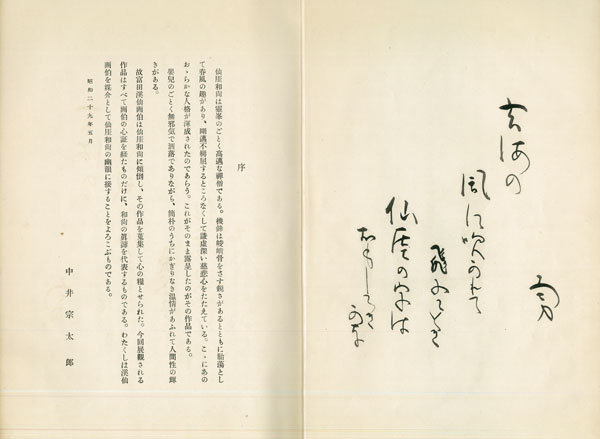 玄海の
風に吹かれて
飛
仙崖の字は
おもしろき
かな
勇
序
仙崖和尚は靈峯のごとく高邁な禪僧である。機鋒は稜峭骨をさす鋭さがあるとともに駘蕩とし
て春風の趣があり、不羈屈するところなくして謙虚深い慈悲心をたたえている。こゝにあの
おゝらかな人格が渾成されたのであらう。これがそのまま露呈したのがその作品である。
嬰兒のごとく無邪氣で洒落でありながら、簡朴のうちにかぎりなき温情があふれて人間性の輝
きがある。
故富田溪仙画伯は仙崖和尚に傾倒し、その作品を蒐集して心の糧とせられた。今回展觀される
作品はすべて画伯の心証を経たものだけに、和尚の眞諦を代表するものである。わたくしは溪仙
画伯を媒介として仙崖和尚の幽韻に接することをよろこぶものである。
昭和二十九年五月
中井宗太郎